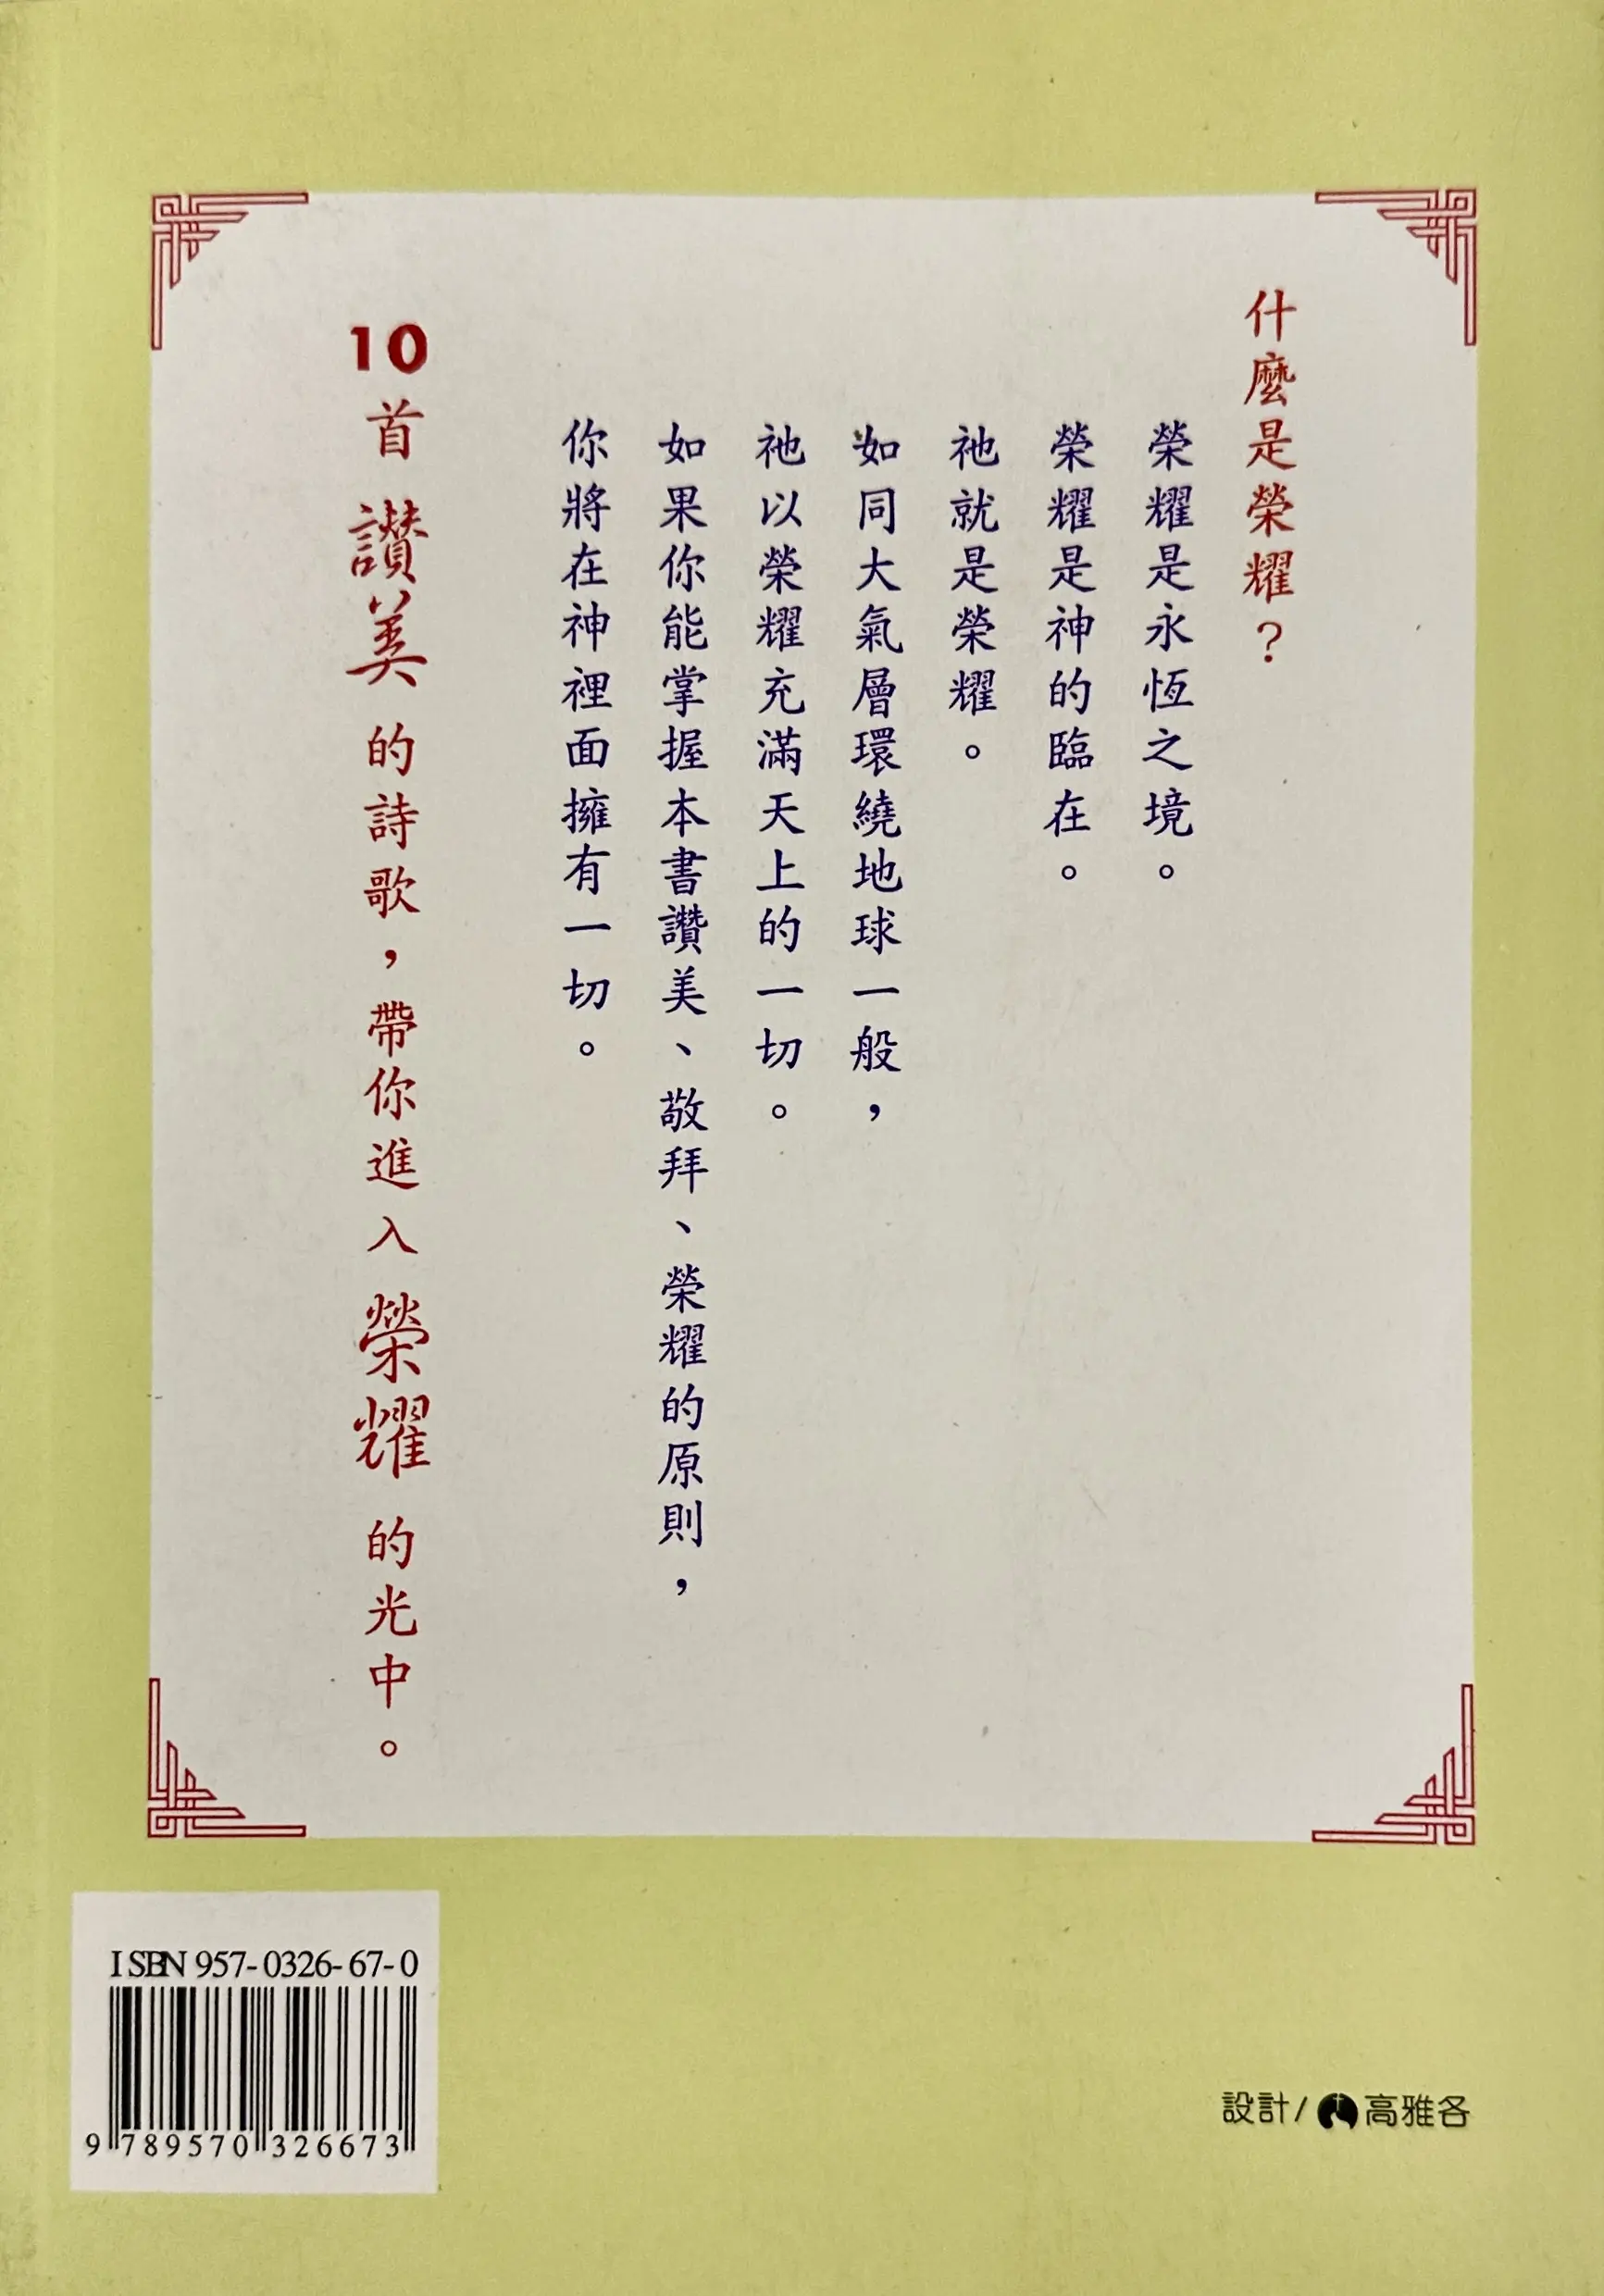 什麼是榮耀？
榮耀是永恆之境。
榮耀是神的臨在。
祂就是榮耀。
如同大氣層環繞地球一般，
祂以榮耀充滿天上的一切。
如果你能掌握本書讚美、敬拜、榮耀的原則，
你將在神裡面擁有一切。
10首讚美的詩歌，帶你進入榮耀的光中。
ISBN 957-0326-67-0
9 789570 326673
設計/高雅各